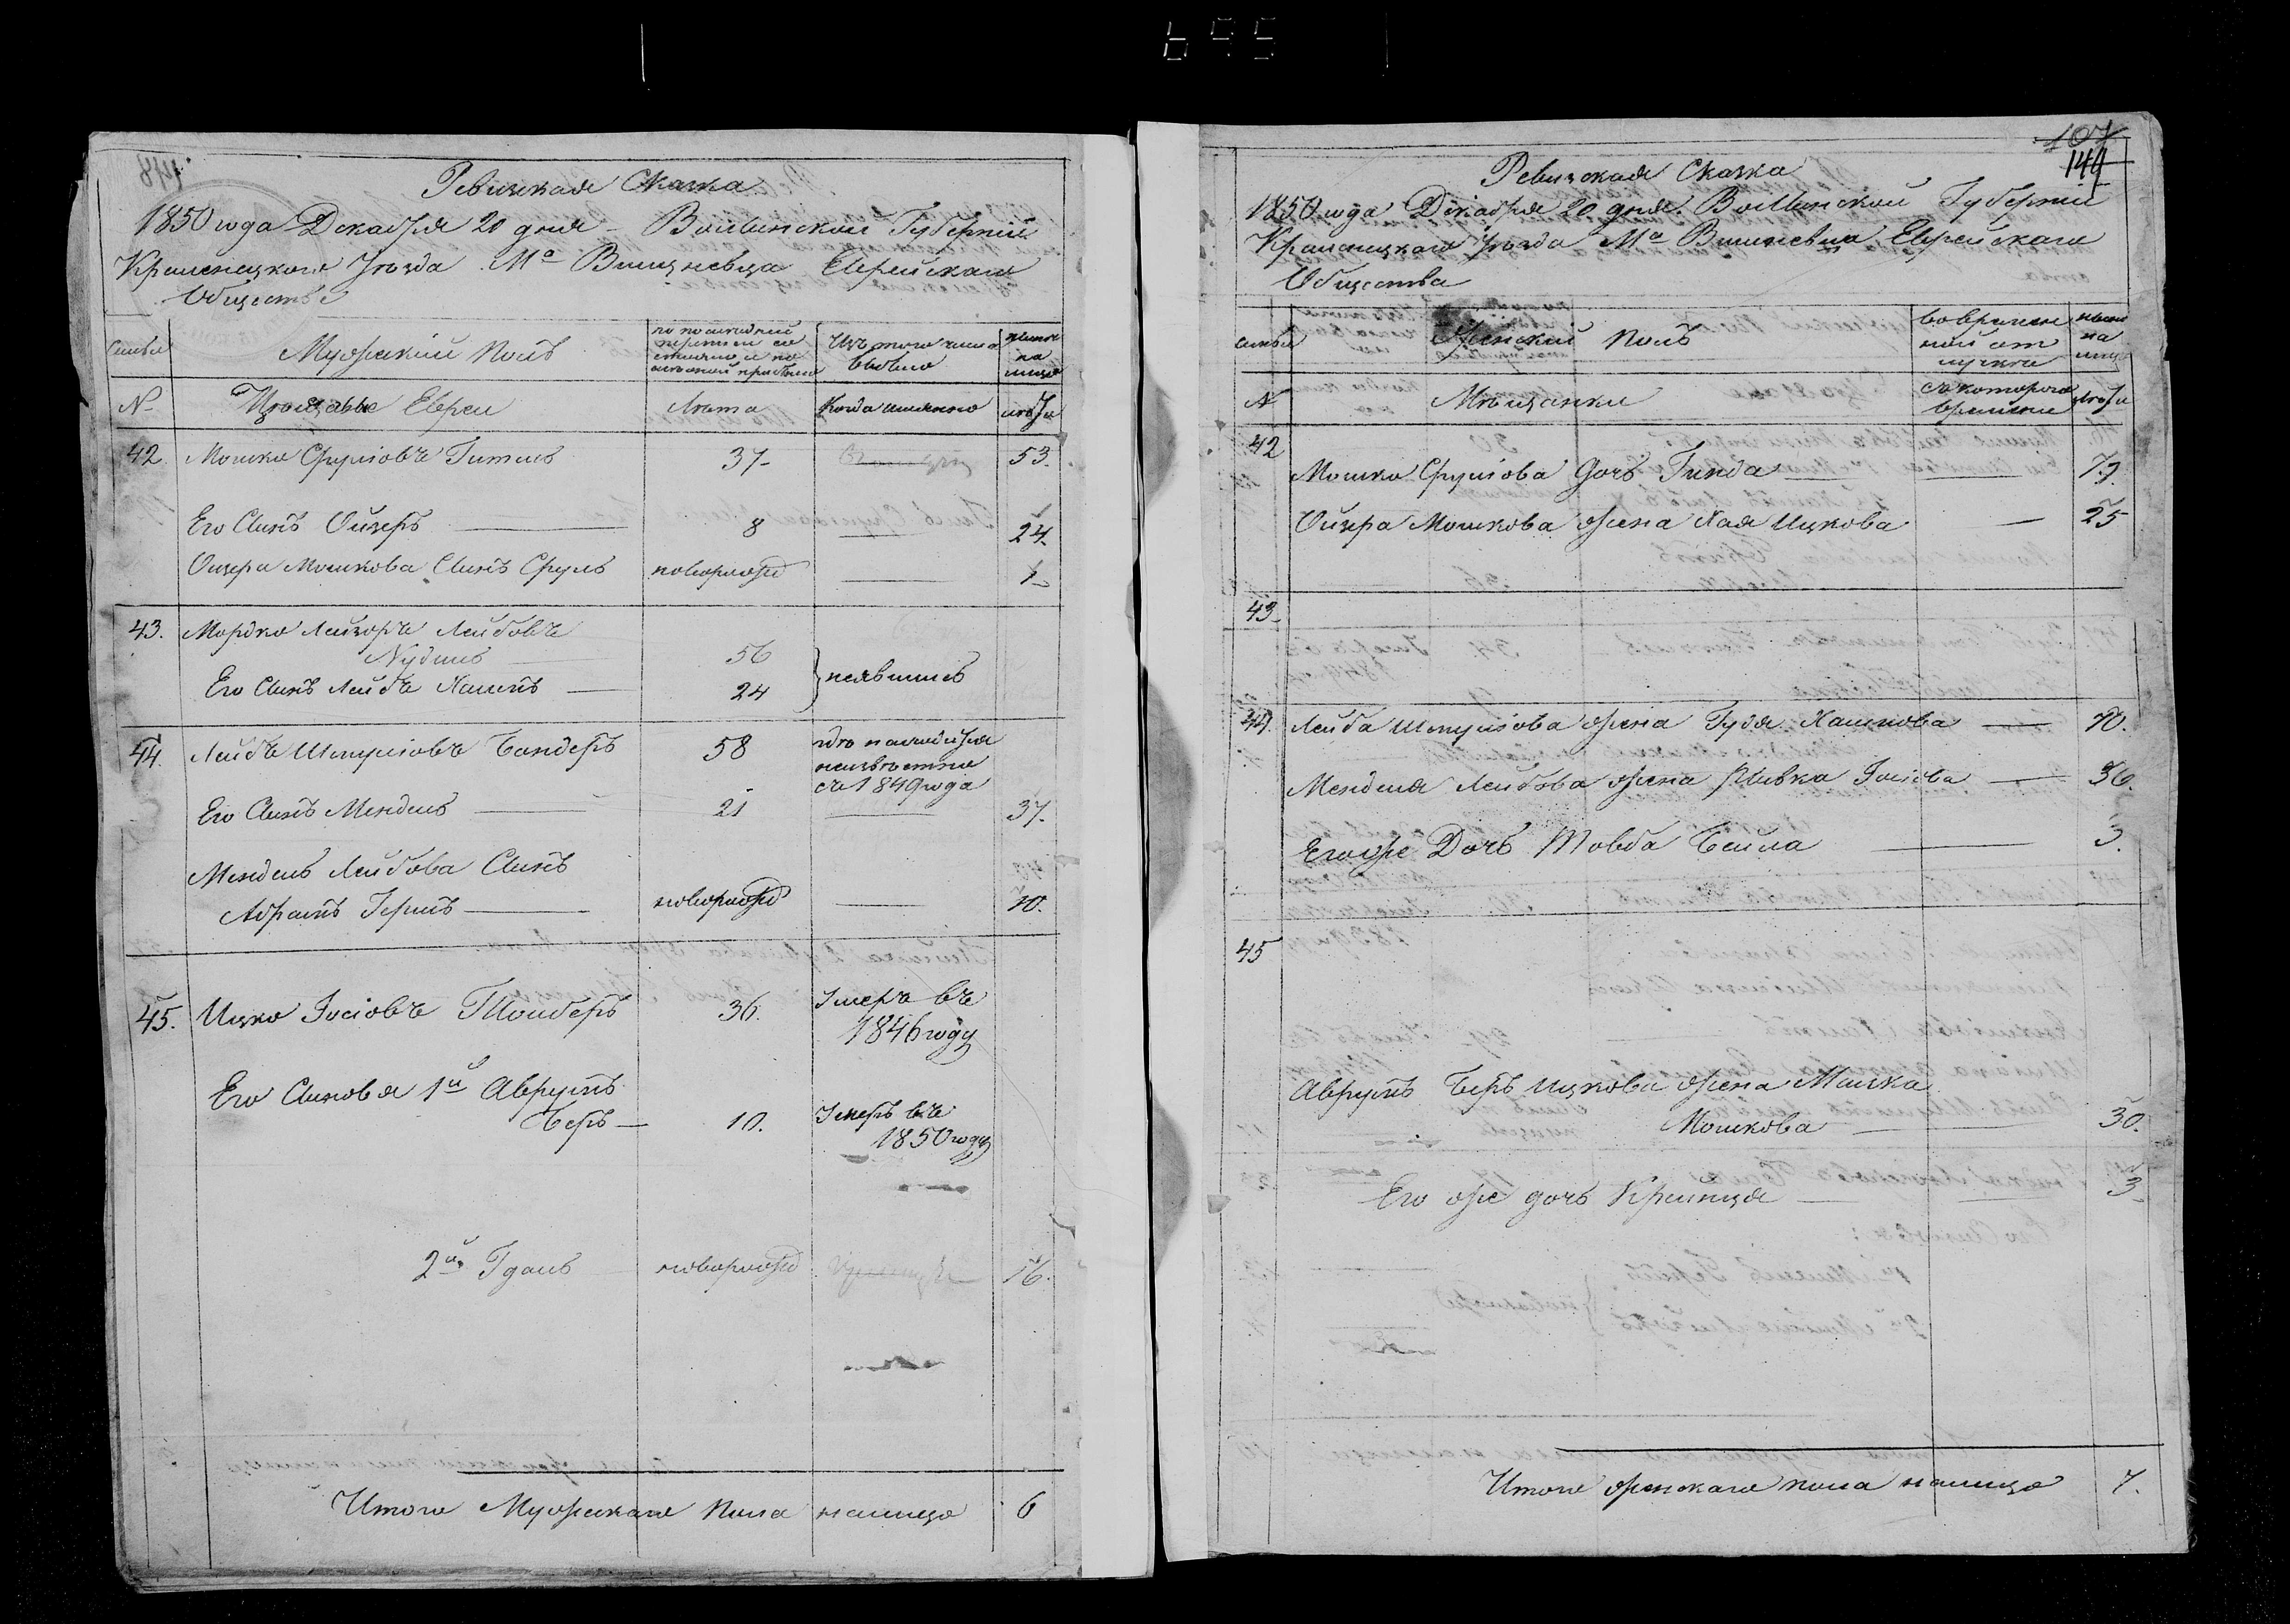 695
Ревизкая Сказка
1850 года Декабря 20 дня Волынской Губернии
Кременецкого Уезда Мᵃ Вишневца Еврейского
Общества
Семьи
Мужский Полъ
по последней
Изъ того числа
выбыло
ныне
на
лицо
№
Евреи
Лета
Когда именно
Лета
42. Мошко Сруліовъ Гитель 37 53.
Его Сынъ Ойзеръ 8 24.
Ойзера Мошкова Сынъ Сруль новорожд 1
43. Мордко Лейзоръ Лейбовъ
Нудель 56
Его Сынъ Лейбъ Хаимъ 24
неявились
44. Лейбъ Шмуліовъ Бондеръ 58 где находится
неизвестно
съ 1849 года
Его Сынъ Мендель 21 37.
Мендель Лейбова Сынъ
Абрамъ Гершъ новорожд 10.
45. Ицко Іосіовъ 36. Умеръ въ
1846 году
Его Сыновья 1й Аврумъ
Беръ 10. Умеръ въ
1850 году
2й новорожд 16.
Итого Мужскаго Пола налицо 6
107
144
Ревизская Сказка
1850 года Декабря 20 дня Волынской Губерніи
Кременецкаго Уезда Мᵃ Вишневца Еврейскаго
Общества
семьи
Женский полъ
Во времен
ной от
лучке
ныне
на
лицо
№
Мещанки
Съ которого
времени
Лета
42
Мошка Срулiова Дочь Гинда
Ойзера Мошкова жена Хая Ицкова 25
43
44. Лейба Шмуліова жена Гудя Хаимова
Менделя Лейбова жена Ривка Іосіова 36.
Егоже Дочь Товба Бейла 3.
45
Аврумъ Беръ Ицкова жена Малка
Мошкова 30.
Его же дочь Крейнця 3
Итого женскаго пола налицо 7.